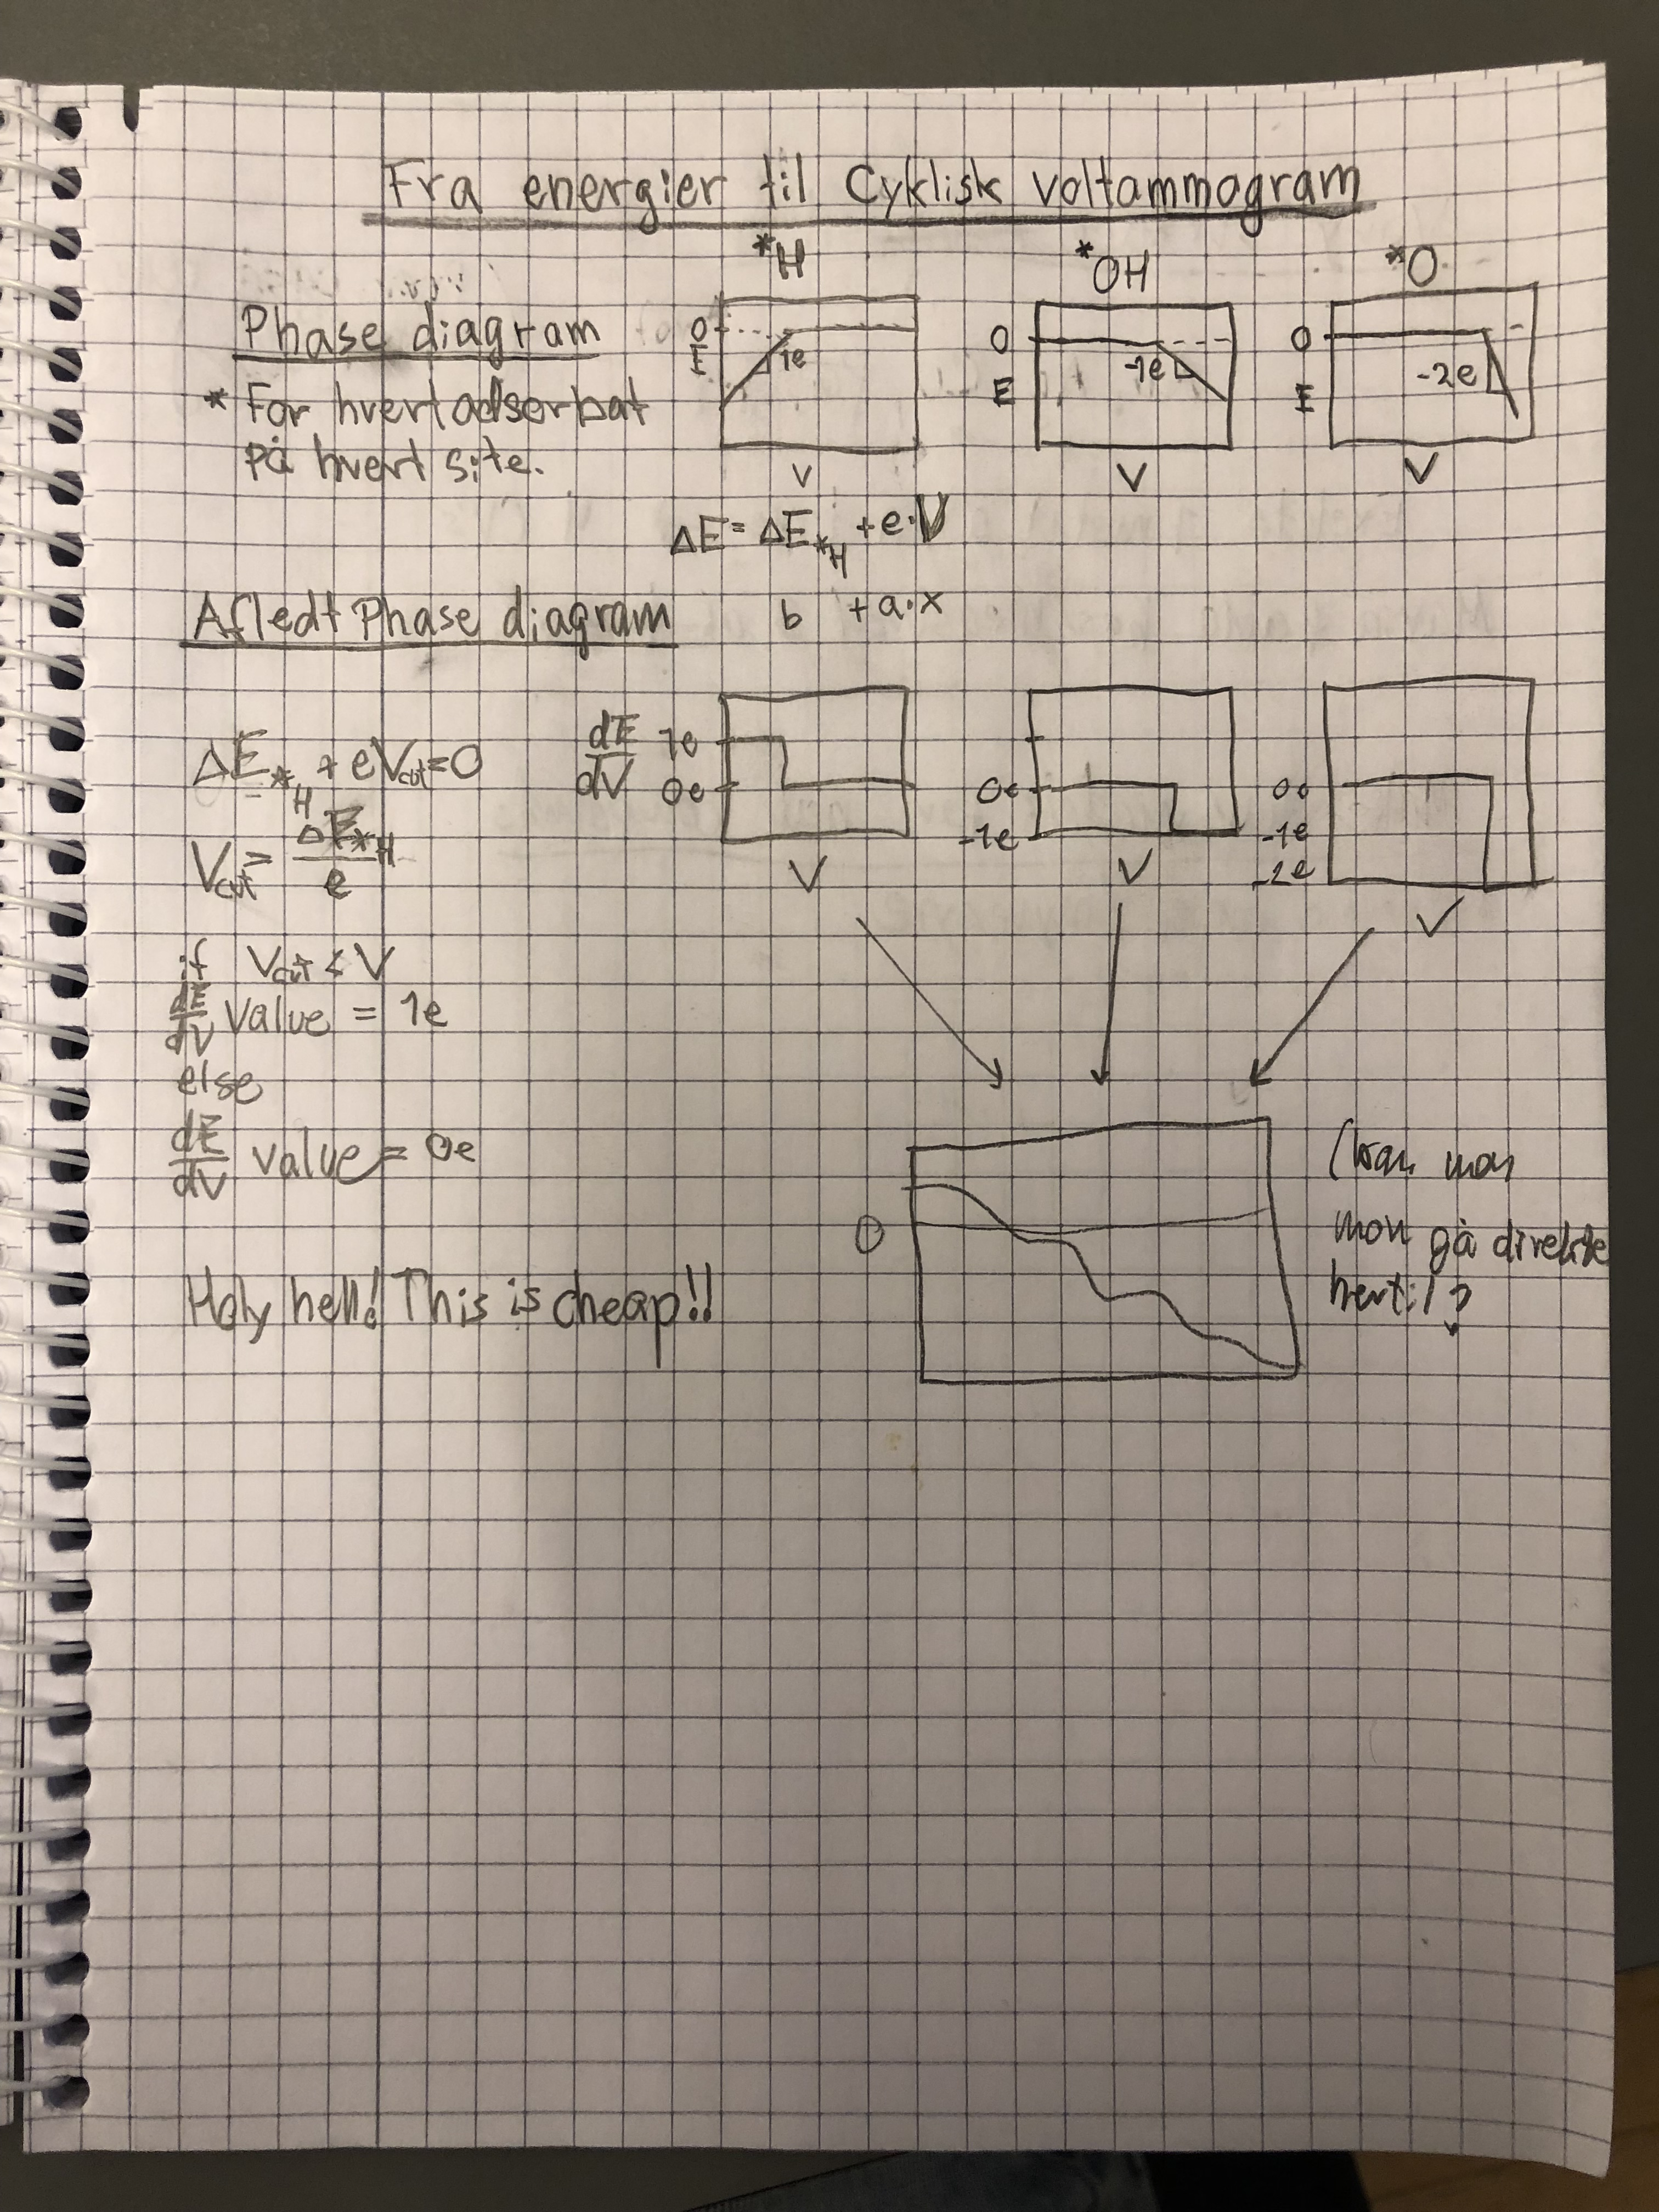 Fra energier til Cyklisk voltammogram
*H
*OH
*O
Phase diagram
* For hvert adsorbat
på hvert site.
0
E
1e
V
0
E
-1e
V
0
E
-2e
V
ΔE = ΔE*H + e·V
b + a·x
Afledt Phase diagram
ΔE*H + eVcut = 0
Vcut = ΔE*H / e
if Vcut < V
dE/dV Value = 1e
else
dE/dV value = 0e
dE/dV
1e
0e
V
0e
-1e
V
0e
-1e
-2e
V
0
(kan man
mon gå direkte
hertil?
Holy hell! This is cheap!!